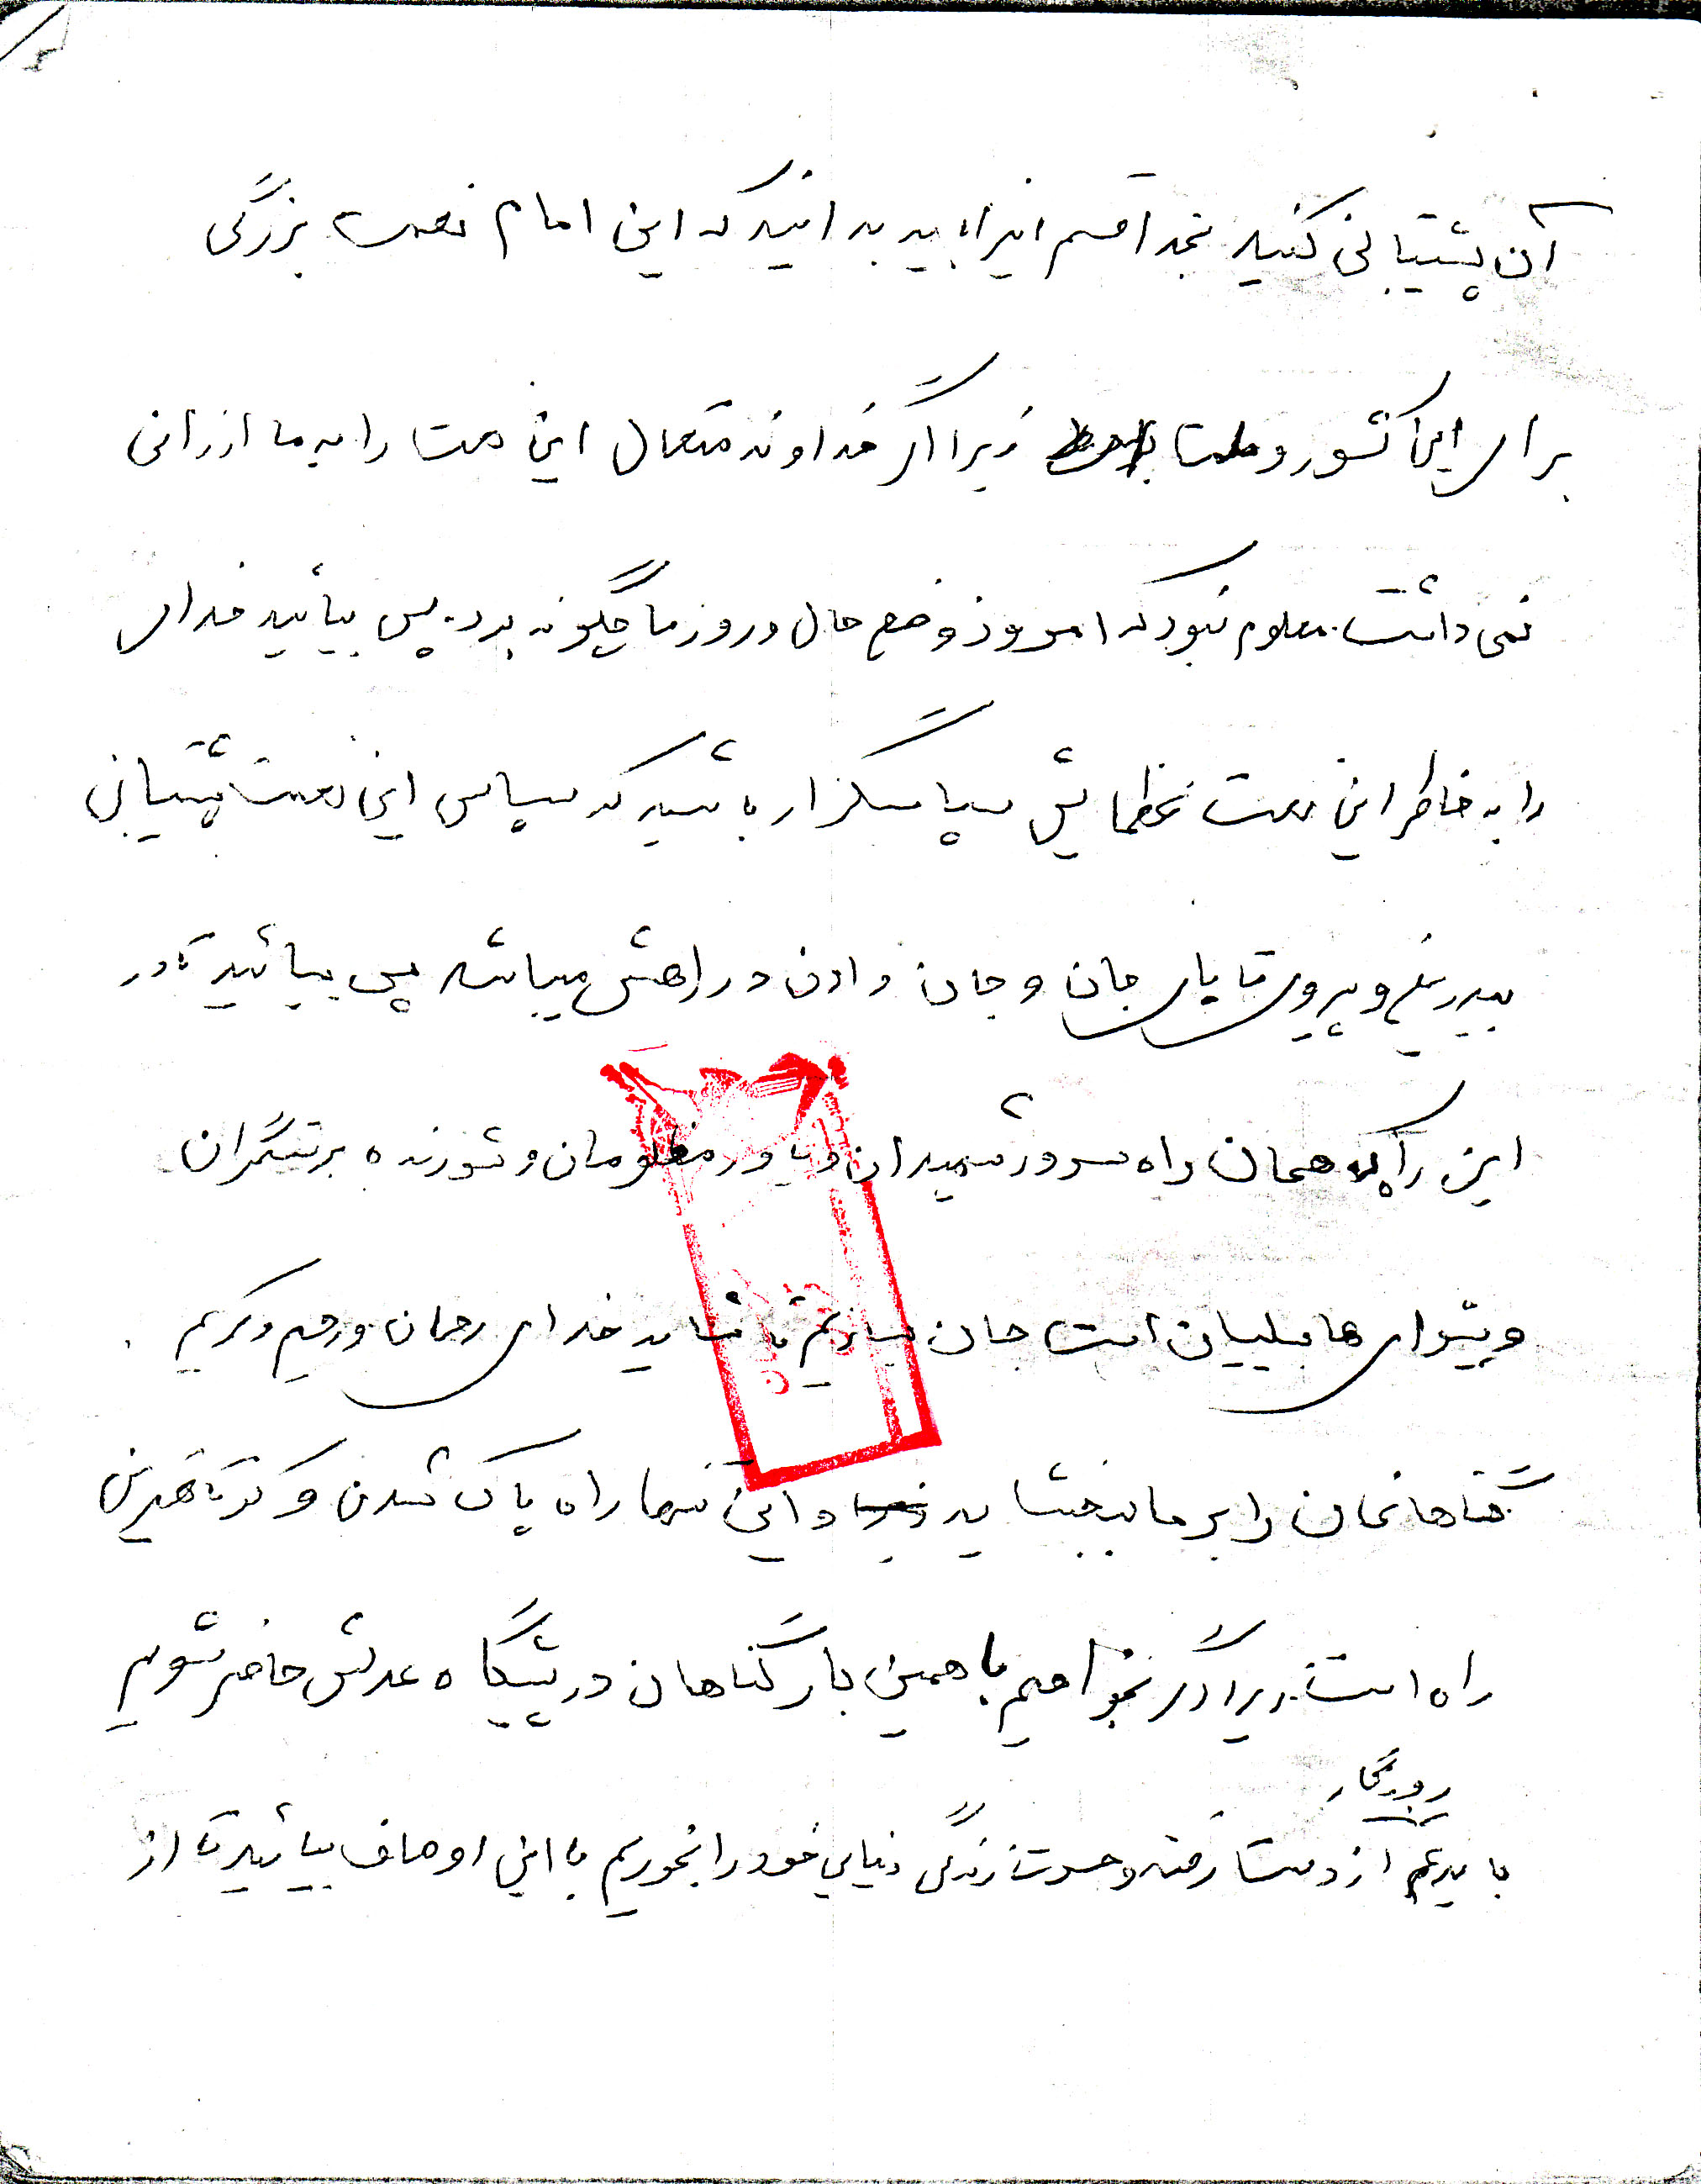 آن پشتیبانی کنید بخدا قسم اینرا باید بدانید که این امام نعمت بزرگی
برای این کشور و ملت زیرا اگر خداوند متعال این نعمت را به ما ارزانی
نمی داشت معلوم نبود که امروز وضع حال و روز ما چگونه بود. پس بیائید خدای
را به خاطر این نعمت عظمایش سپاسگزار باشید که سپاس این نعمت پشتیبانی
بیدریغ و پیروی تا پای جان و جان دادن در راهش میباشد پس بیائید تا در
این راه که همان راه سرور شهیدان و یاور مظلومان و شورنده بر ستمگران
و پیشوای هابیلیان است جان ببازیم تا شاید خدای رحمان و رحیم و کریم
گناهانمان را بر ما ببخشاید و این تنها راه پاک شدن و کوتاهترین
راه است. زیرا اگر بخواهیم با همین بار گناهان در پیشگاه عدلش حاضر شویم
روزگار
باید غم از دست رفته و حسرت زندگی دنیایی خود را بخوریم با این اوصاف بیائید تا از